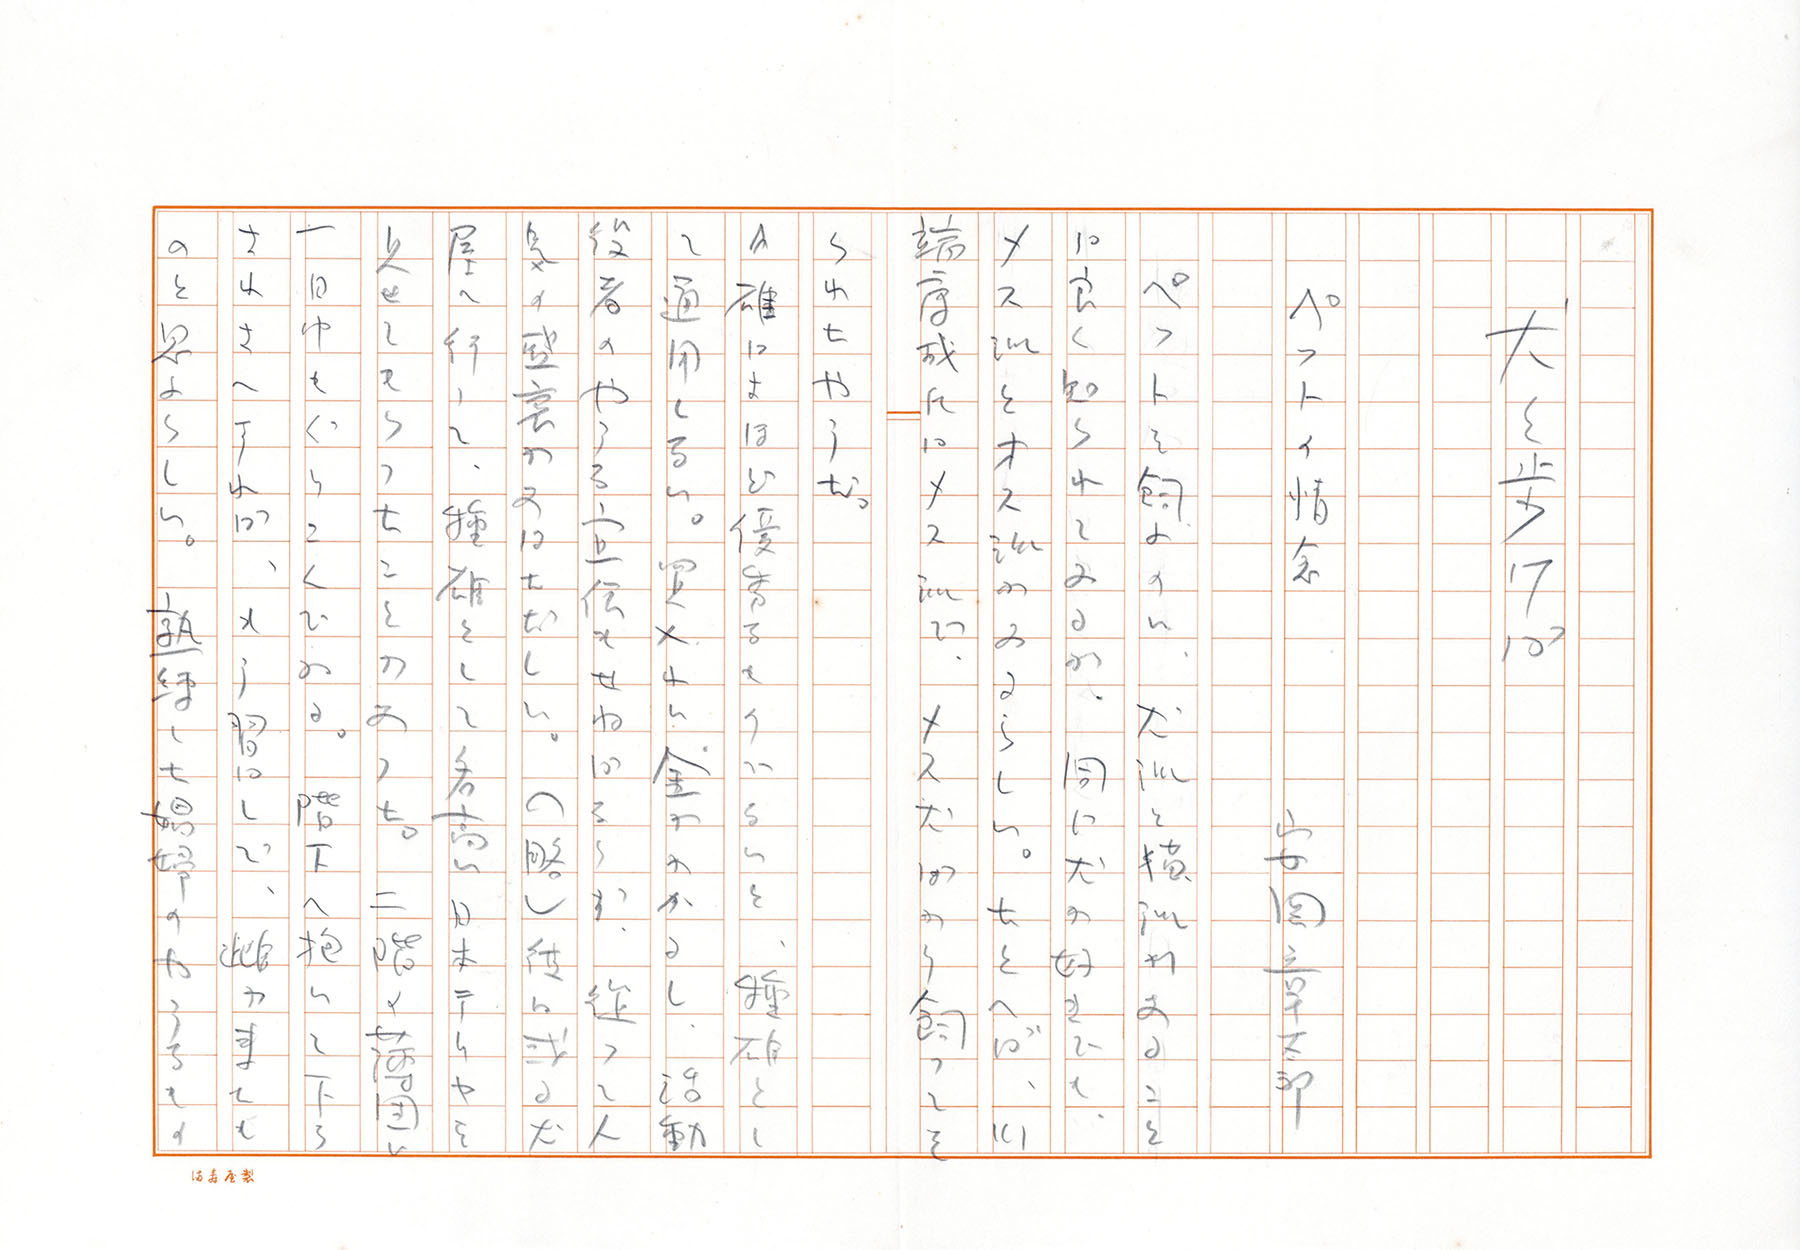 犬を歩けば
ペットの情念
安岡章太郎
ペットを飼ふのに、犬派と猫派があることを
は良く知られてゐるが、同じ犬の好きでも、
メス派とオス派があるらしい。たとへば、川
端康成氏はメス派で、メス犬ばかり飼ってを
られたやうだ。
か雄はよほど優秀なものでないと、種雄とし
て通用しない。買入れに金がかかるし、活動
役者のやうな宣伝もせねばならず、従って人
気の盛衰があはただしい。(略)彼は或る犬
屋へ行って、種雄として名高い日本テリヤを
見せてもらったことがあった。二階の蒲団に
一日中もぐりこんでゐる。階下へ抱いて下ろ
されさへすれば、もう習はしで、雌が来たも
のと思ふらしい。熟練した娼婦のやうなもの
満寿屋製